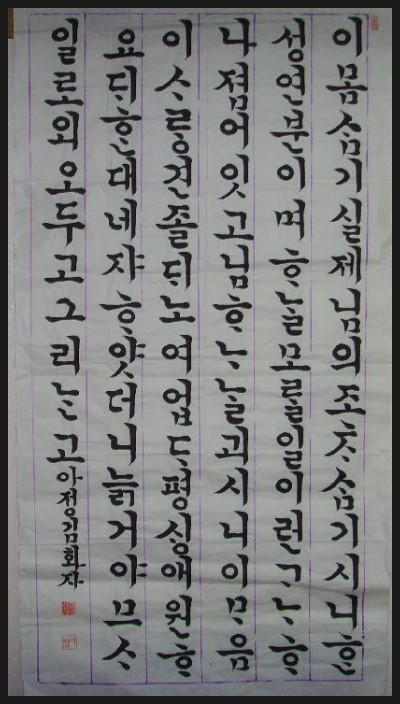 이몸ᄉᆞᆷ기실제님의조ᄎᆞᄉᆞᆷ기시니ᄒᆞᆫ
ᄉᆡᆼ연분이며ᄒᆞᄂᆞᆯ모ᄅᆞᆯ일이런ᄀᆞᄂᆞᄒᆞ
나졈어잇고님ᄒᆞᄂᆞᄂᆞᆯ괴시니이ᄆᆞ음
이ᄉᆞᄅᆞᆼ견졸ᄃᆡ노여업ᄃᆞ평ᄉᆡᆼ애원ᄒᆞ
요ᄃᆡᄒᆞᆫ대녜쟈ᄒᆞ얏더니늙거야므ᄉᆞ
일로외오두고그리ᄂᆞᆫ고아정김회자